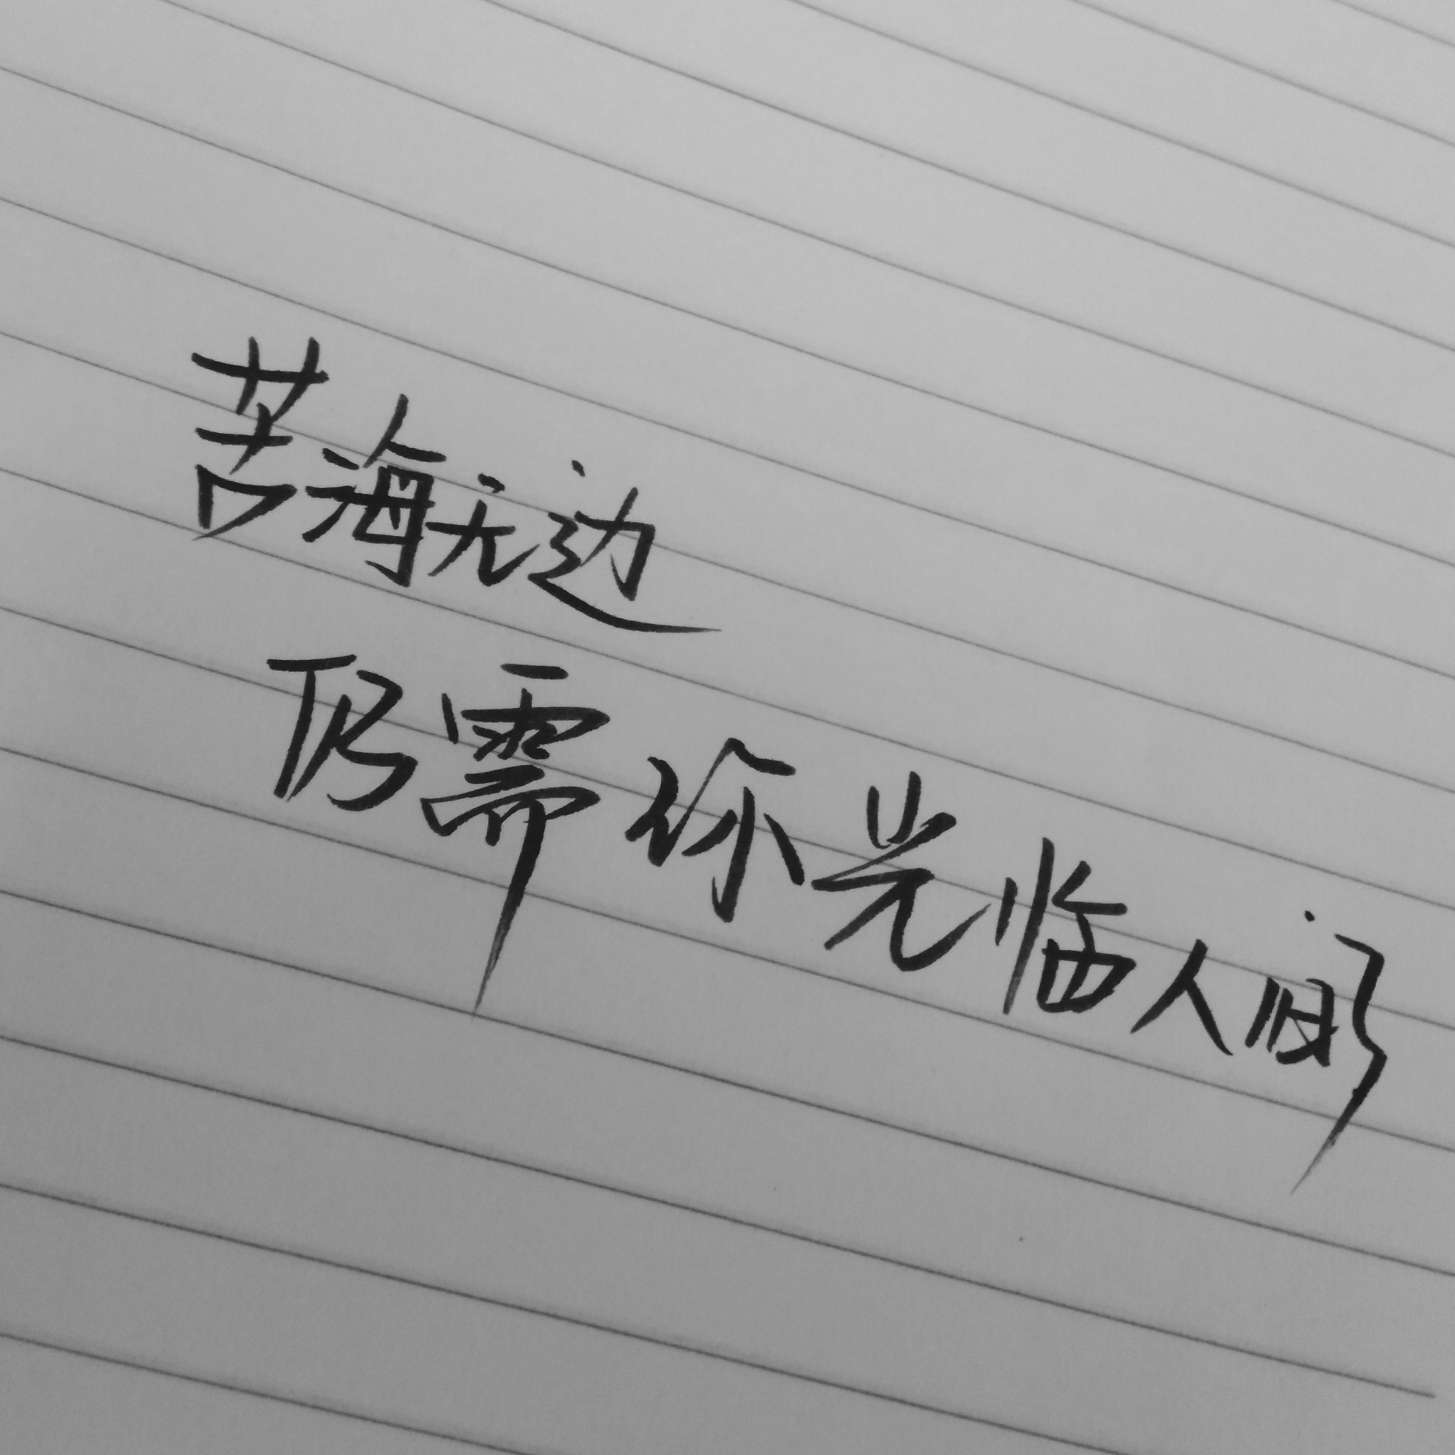 苦海无边
仍需你光临人间